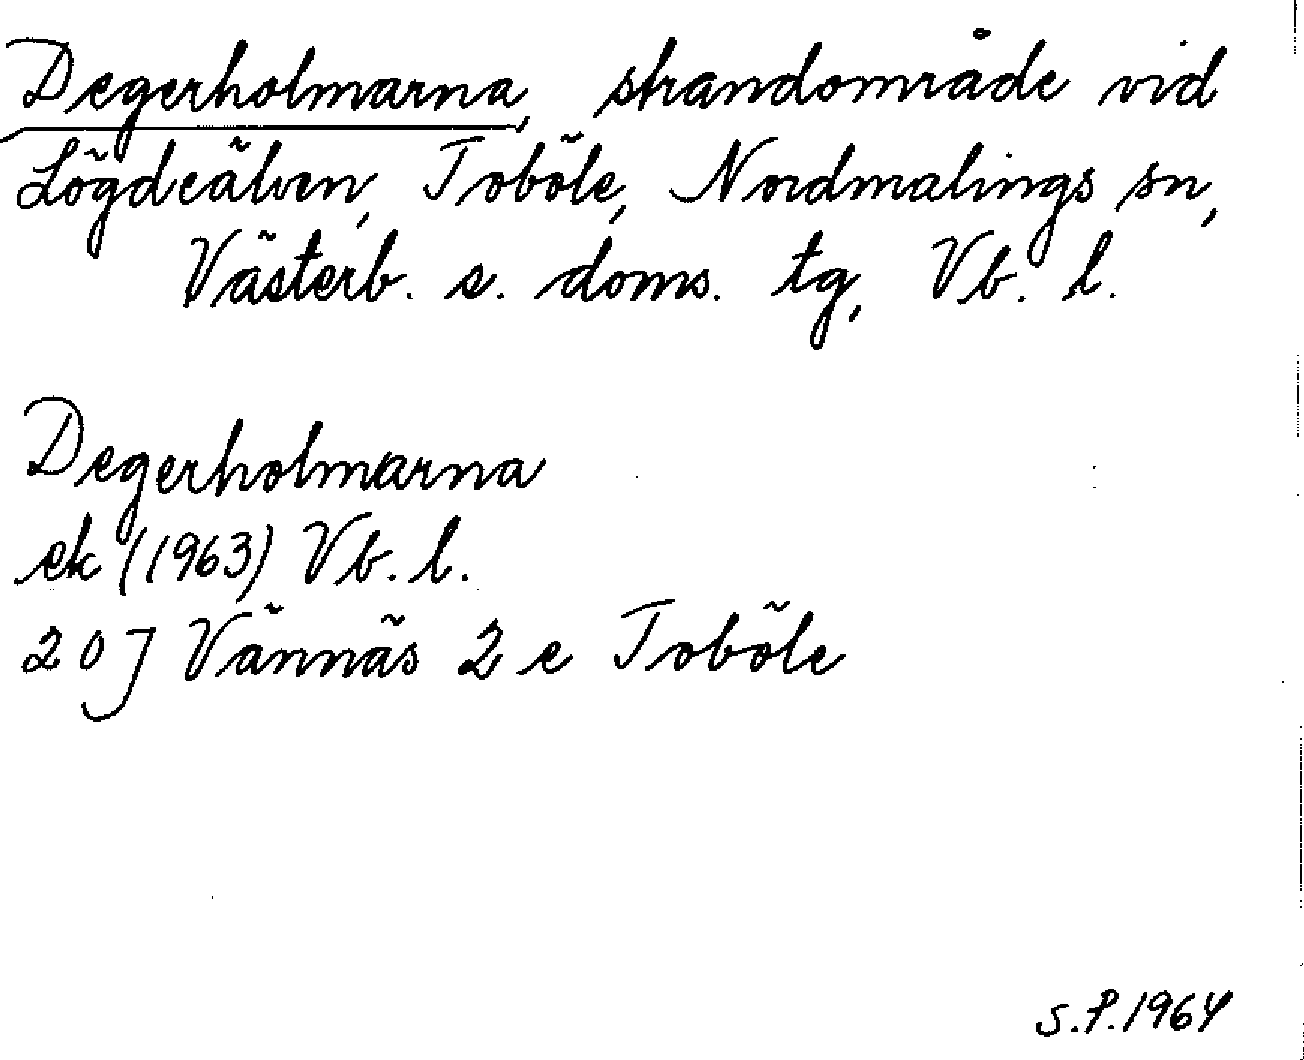 Degerholmarna, strandområde vid
Lögdeälven, Toböle, Nordmalings sn,
Västerb. s. doms. tg, Vb. l.
Degerholmarna
ek (1963) Vb. l.
20J Vännäs 2 e Toböle
S.P. 1964